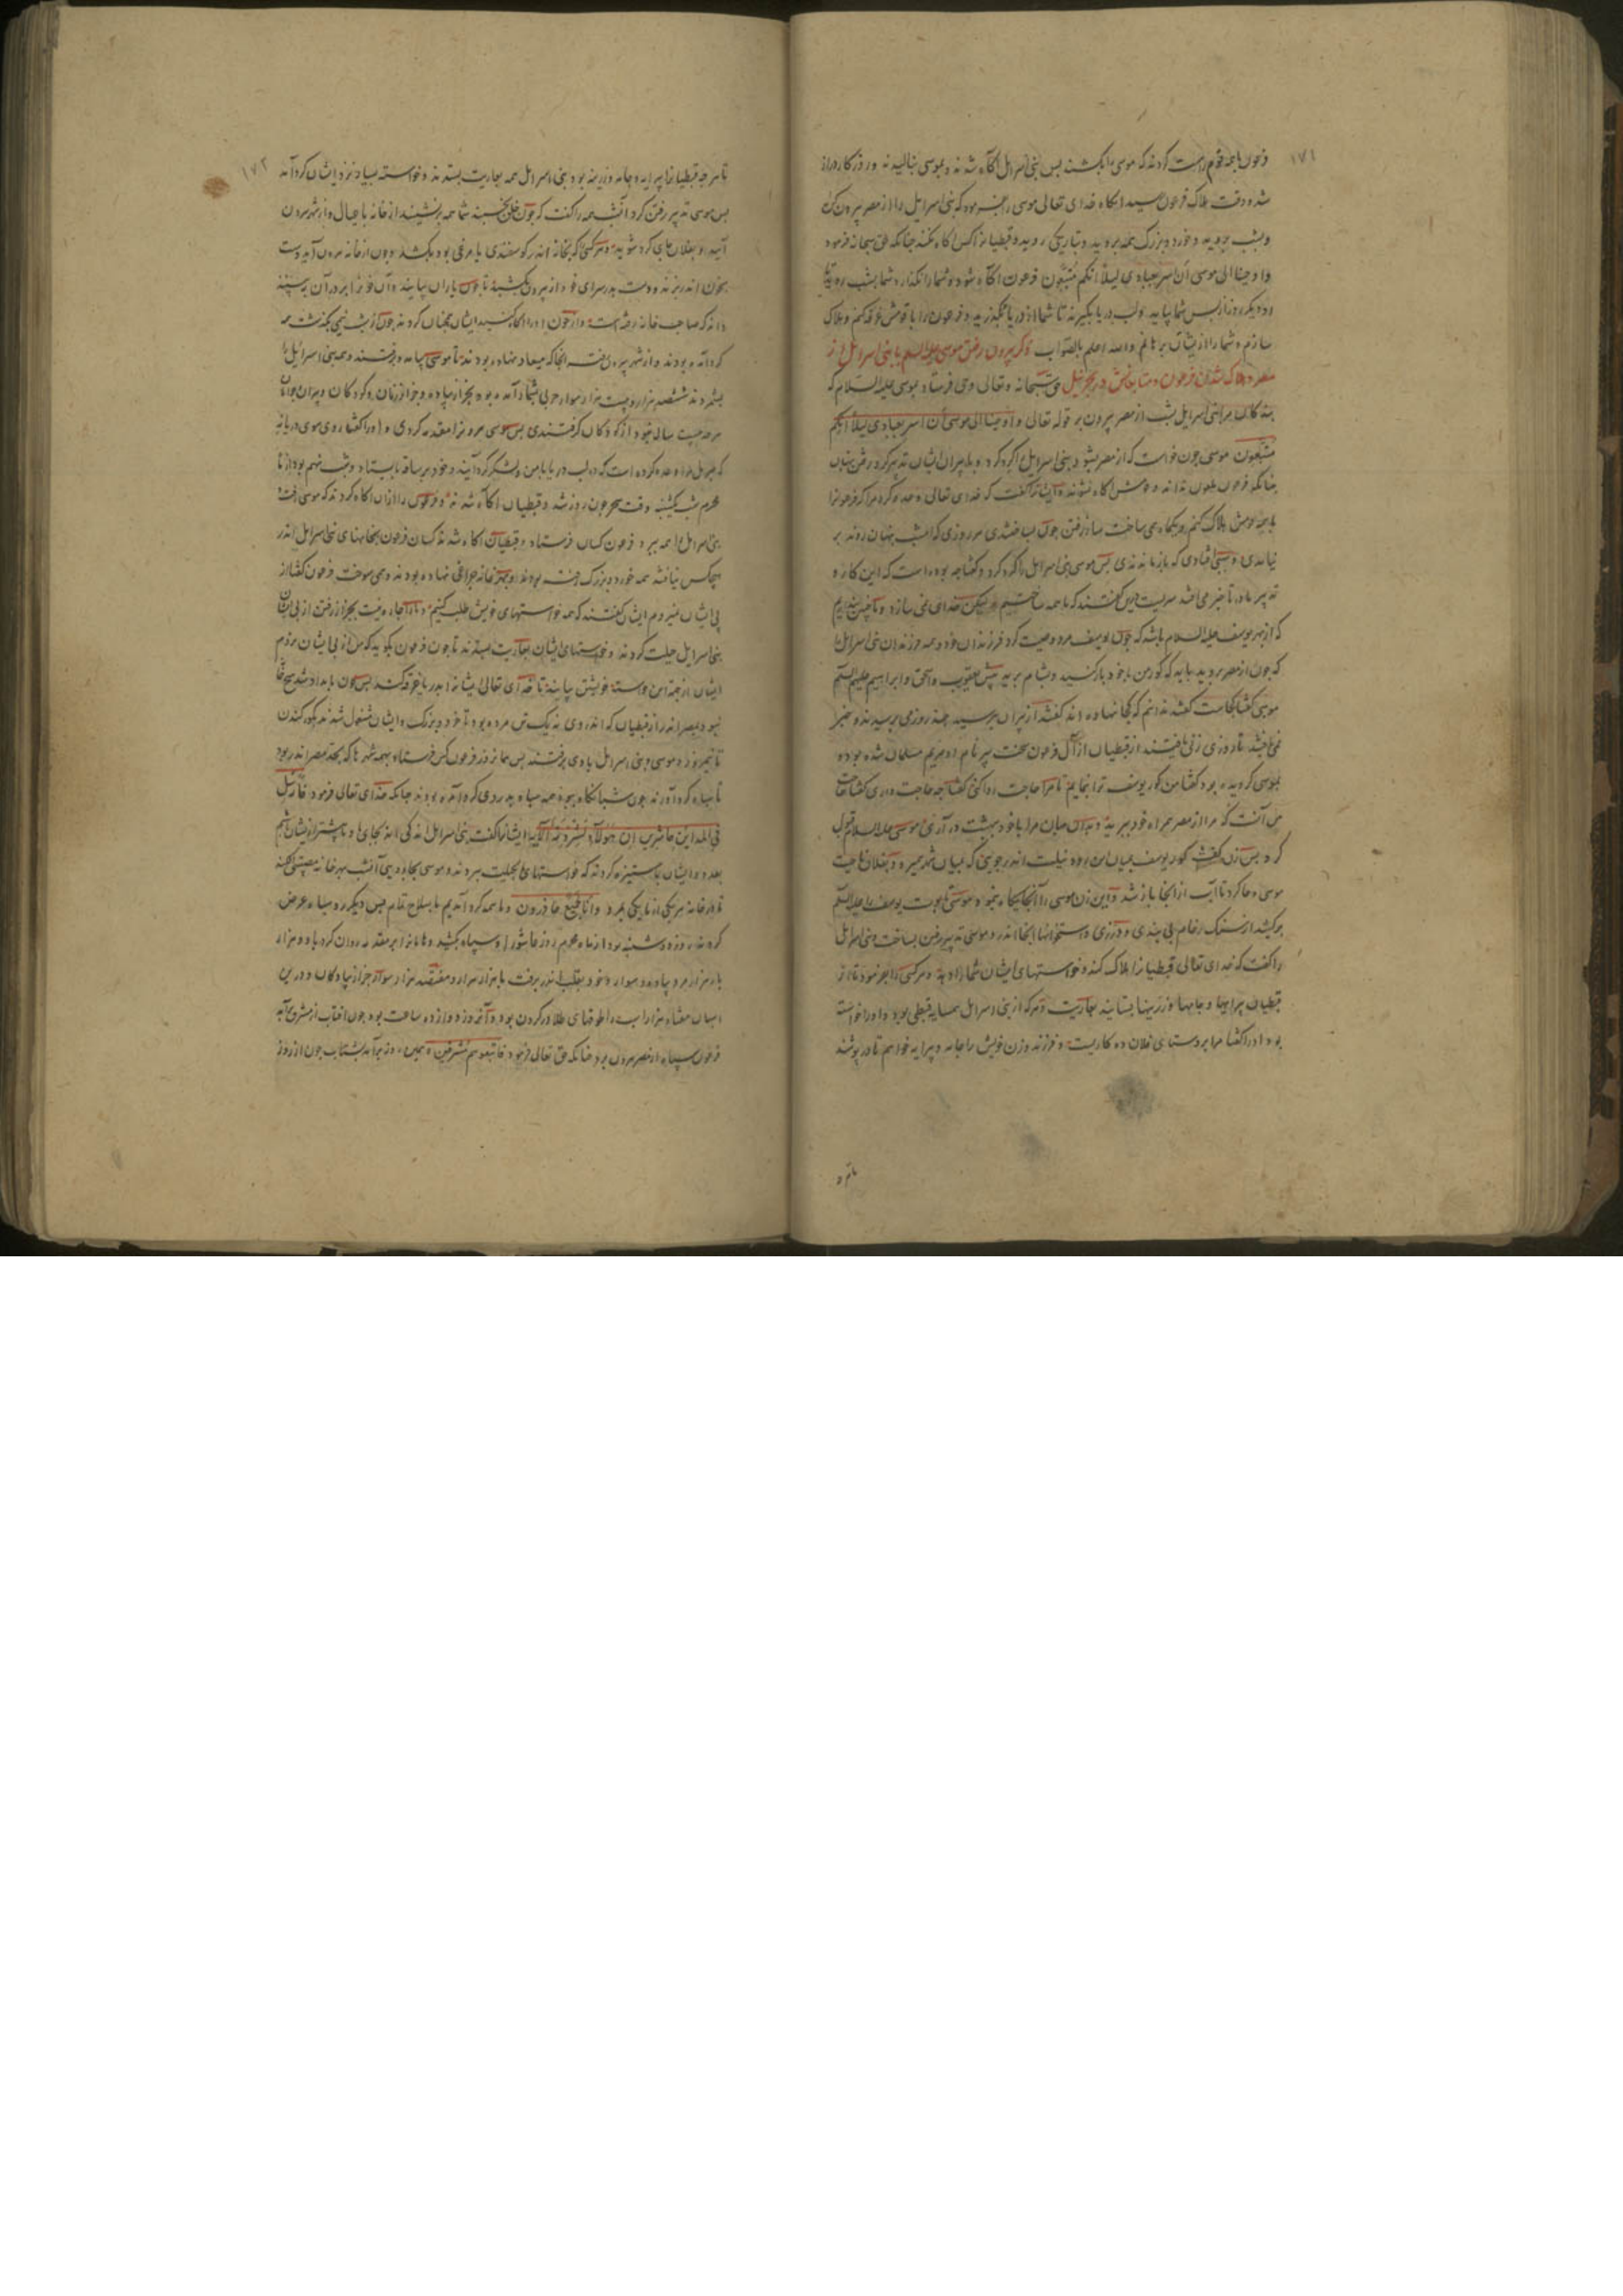 ۱۷۱
فرعون با همه قوم راست کردند که موسی را بکشند بس بنی اسرایل آکاه شدند و بموسی بنالیدند و روزکار دراز
شد و وقت هلاک فرعون رسید آنکاه خدای تعالی موسی را بفرمود که بنی اسرایل را از مصر بیرون کن
و بشب بروید و خورد و بزرک همه بروید و بتاریکی روید و قبطیانرا کس آکاه نکند جنانکه حق سبحانه فرمود
و اوحینا الی موسی ان اسر بعبادی لیلا انکم متبعون فرعون آکاه شود و شما را نکذارد شما بشب روید
او دیکر روز از بس شما بیاید و لب دریا بکیرند تا شما از دریا بکذرید و فرعون را با قومش غرقه کنم و هلاک
سازم و شما را از ایشان برهانم والله اعلم بالصواب ذکر بیرون رفتن موسی علیه السلم با بنی اسرایل از
مصر و هلاک شدن فرعون و متابعانش در بحر نیل حق سبحانه و تعالی وحی فرستاد بموسی علیه السلام که
بندکان مرا بنی اسرایل بشب از مصر بیرون بر قوله تعالی و اوحینا الی موسی ان اسر بعبادی لیلا انکم
متبعون موسی جون خواست که از مصر بشود بنی اسرایل را کرد کرد و با پیران ایشان تدبیر کرد رفتن بنهان
جنانکه فرعون ملعون نداند و کسش آکاه نشوند و ایشانرا کفت که خدای تعالی وعده کرد مرا که فرعونرا
با همه قومش هلاک کنم
نیامدی و سببی افتادی که باز ماندندی بس موسی بنی اسرایل را کرد کرد و کفتا جه بوده است که این کار و
تدبیر ما در تاخیر می افتد
که از بهر یوسف علیه السلام باشد که جون یوسف مرد وصیت کرد فرزندان خود و همه فرزندان بنی اسرایل را
که جون از مصر بروید باید که کور من با خود بازکنید و بشام برید پیش یعقوب و اسحق و ابراهیم علیهم السلم
موسی کفتا کجاست کفتند ندانم که کجا نهاده اند کفتند از پیران بپرسید جند روز می پرسیدند و خبر
نمی یافتند تا روزی زنی یافتند از قبطیان از آل فرعون سخت پیر نام او مریم مسلمان شده بود و
بموسی کرویده بود کفتا من کور یوسف ترا بنمایم تا مرا حاجت روا کنی کفتا جه حاجت داری کفتا حاجت
من آنست که مرا از مصر همراه خود ببرید و بدان جهان مرا با خود ببهشت در آری موسی علیه السلام قبول
کرد بس آن زن کفت کور یوسف بمیان این رود نیلست اندر جویی که بمیان شهر میرود و بفلان جایست
موسی دعا کرد تا آب از آنجا باز شد و این زن موسی را آنجایکاه بنمود و موسی تابوت یوسف را علیه السلم
برکشید از سنک رخام بی بندی و درزی و استخوانها آنجا اندر و موسی تدبیر رفتن بساخت و بنی اسرایل
را کفت که خدای تعالی قبطیانرا هلاک کند و خواستهای ایشان شما را دهد و هر کسی را بفرمود تا از
قبطیان پیرایها و جامها و زرینها بستانید بعاریت و هر که از بنی اسرایل همسایه قبطی بود و او را خواسته
بود او را کفتا مرا بروستای فلان ده کاریست و فرزند و زن خویش را جامه و پیرایه خواهم تا در پوشند
تا هر
۱۷۲
تا هر جه قبطیانرا پیرایه و جامه و زرینه بود بنی اسرایل همه بعاریت بستدند و خواسته بسیار نزد ایشان کرد آمد
بس موسی تدبیر رفتن کرد آنشب همه را کفت که جون خلق بخسبند شما همه برنشینید از خانه با عیال و از شهر بیرون
آیید و بفلان جای کرد شوید و هر کسی که بخانه اندر کوسفندی یا مرغی بود بکشد و جون از خانه بیرون آید دست
بخون اندر زند و دست بدر سرای خود از بیرون بکشد
داند که صاحب خانه رفته است
کرد آمده بودند و از شهر بیرون رفته آنجا که میعاد نهاده بودند تا موسی بیامد و برفتند و همه بنی اسرایل را
بشمردند ششصد هزار و بیست هزار سوار حربی بشمار آمده بود بجز از پیاده و جز از زنان و کودکان و پیران
هر جه بیست ساله نبود از کودکان کرفتندی بس موسی هرونرا مقدمه کردی و او را کفتا روی سوی دریا نه
که جبریل مرا وعده کرده است که بر لب دریا با من و لشکر کرد آیند و خود بر ساقه بایستاد و شب نهم بود از ماه
محرم شب یکشنبه وقت سحر جون روز شد و قبطیان آکاه شدند و فرعون را از آن آکاه کردند که موسی رفت و
بنی اسرایل را همه ببرد فرعون کسان فرستاد و قبطیان آکاه شدند کسان فرعون بخانهای بنی اسرایل اندر
هیجکس نیافتند همه خورد و بزرک رفته بودند و بهر خانه جراغی نهاده بودند و می سوخت فرعون کفتا از
پی ایشان میروم ایشان کفتند که همه خواستهای خویش طلب کنیم و ما را جاره نیست بجز از رفتن از پی ایشان
بنی اسرایل حیلت کردند و خواستهای ایشان بعاریت بستدند تا جون فرعون بکوید که من از پی ایشان نروم
ایشان از جهة این خواسته خویش بیایند تا خدای تعالی ایشانرا بدریا غرقه کند بس جون بامداد شد هیج خانه
نبود بمصر اندر از قبطیان که اندر وی نه یک تن مرده بود تا خورد و بزرک و ایشان مشغول شدند بکور کندن
تا نیمروز و موسی و بنی اسرایل با وی برفتند بس هم آنروز فرعون کس فرستاد بهمه شهرها که بحد مصر اندر بود
تا سپاه کرد آورند جون شبانکاه ببود همه سپاه بدر وی کرد آمده بودند جنانکه خدای تعالی فرمود فارسل
فی المداین حاشرین ان هولاء لشرذمة الآیه ایشانرا کفت بنی اسرایل اندکی اند بجای ما و ما بیشتر از ایشان باشیم
بعدد و ایشان با ما ستیزه کردند که خواستهای ما بحیلت ببردند و موسی بجادویی آنشب بهر خانه مصیبتی افکند
تا از هر خانه هر یکی از ما یکی بمرد و انا لجمیع حاذرون و ما همه کرد آمدیم با سلاح تمام بس دیکر روز سپاه عرض
کردند روز دوشنبه بود از ماه محرم روز عاشورا و سپاه بکشید و هامانرا بر مقدمه روان کرد با دو هزار
بار هزار مرد پیاده و سوار و خود بقلب اندر برفت با هزار هزار و هفتصد هزار سوار جز از پیادکان و در این
اسبان هفتاد هزار اسب با طوقهای طلا در کردن بود و آنروز دوازده ساعت بود جون آفتاب از مشرق برآمد
فرعون سپاه از مصر بیرون برد جنانکه حق تعالی فرمود فاتبعوهم مشرقین و همین روز برآمد بشتاب جون از روز